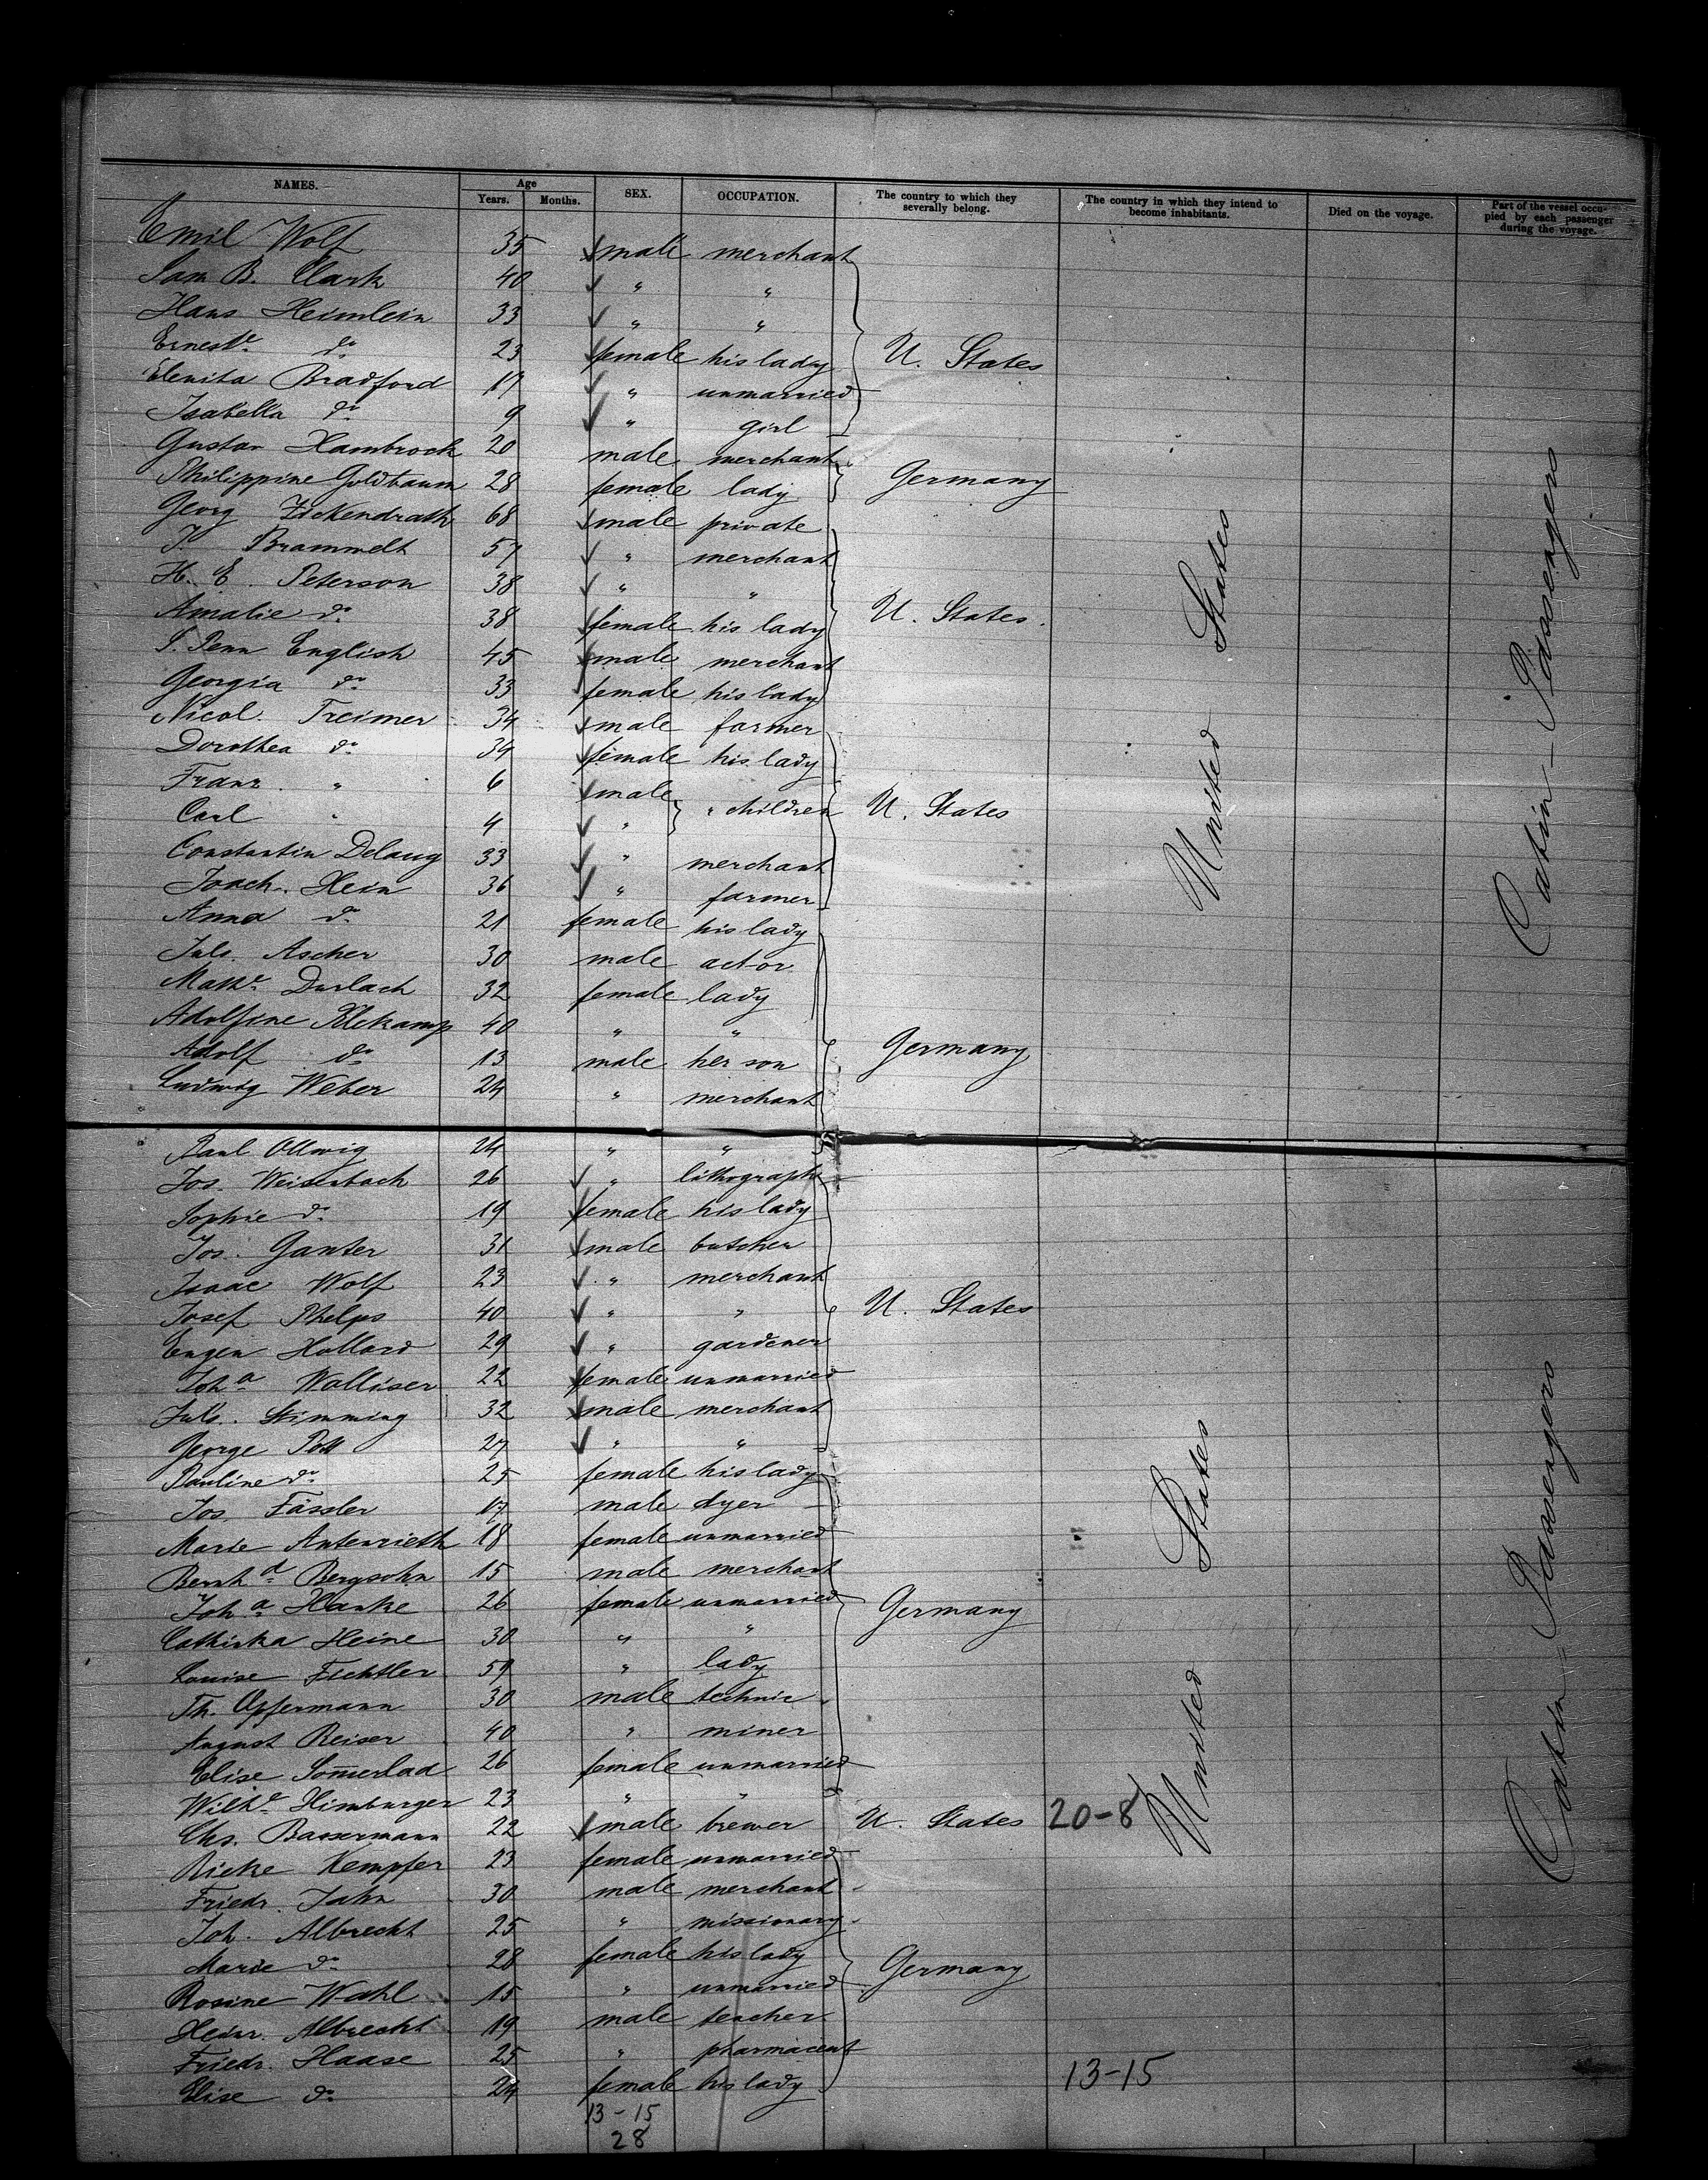 NAMES. Age SEX. OCCUPATION. The country to which they severally belong. The country in which they intend to become inhabitants. Died on the voyage. Part of the vessel occupied by each passenger during the voyage.
Years. Months.
Emil Wolf 35 male merchant
Sam B. Clark 40 " "
Hans Heimlein 33 " "
Ernest.e do 23 female his lady U. States
Elenita Bradford 17 " unmarried
Isabella do 9 " girl
Gustav Hambrock 20 male merchant
Philippine Goldbaum 28 female lady Germany
Georg Fickendrath 68 male private
J. Brammelt 57 " merchant
H. E. Peterson 38 " "
Amalie do 38 female his lady U. States.
S. Penn English 45 male merchant
Georgia do 33 female his lady
Nicol. Treimer 34 male farmer
Dorothea do 34 female his lady
Franz " 6 male
Carl " 4 " " children U. States
Constantin Delaug 33 " merchant
Joach. Hein 36 " farmer
Anna do 21 female his lady
Juls. Ascher 30 male actor
Math.e Durlach 32 female lady
Adolfine Klekamp 40 " "
Adolf do 13 male her son Germany
Ludwig Weber 24 " merchant
United States
Cabin - Passengers
Paul Ollwig 24 " "
Jos. Weisenbach 26 " lithograph
Sophie do 19 female his lady
Jos. Ganter 31 male butcher
Isaac Wolf 23 " merchant
Josef Phelps 40 " " U. States
Eugen Hollard 29 " gardener
Joh.a Walliser 22 female unmarried
Juls. Stimming 32 male merchant
George Poll 27 " "
Pauline do 25 female his lady
Jos. Fässler 17 male dyer
Marie Autenrieth 18 female unmarried
Bernh.d Bergsohn 15 male merchant
Joh.a Hanke 26 female unmarried Germany
Cathinka Heine 30 " "
Louise Fichtler 59 " lady
Th. Opfermann 30 male technic
August Reiser 40 " miner
Elise Somerlad 26 female unmarried
Wilh.e Himburger 23 " "
Chs. Bassermann 22 male brewer U. States 20-8
Ricke Kempfer 23 female unmarried
Friedr. Jahn 30 male merchant
Joh. Albrecht 25 " missionary
Marie do 28 female his lady Germany
Rosine Wahl 15 " unmarried
Heinr. Albrecht 19 male teacher
Friedr. Haase 25 " pharmaceut
Elise do 24 female his lady 13-15
13-15
28
United States
Cabin - Passengers